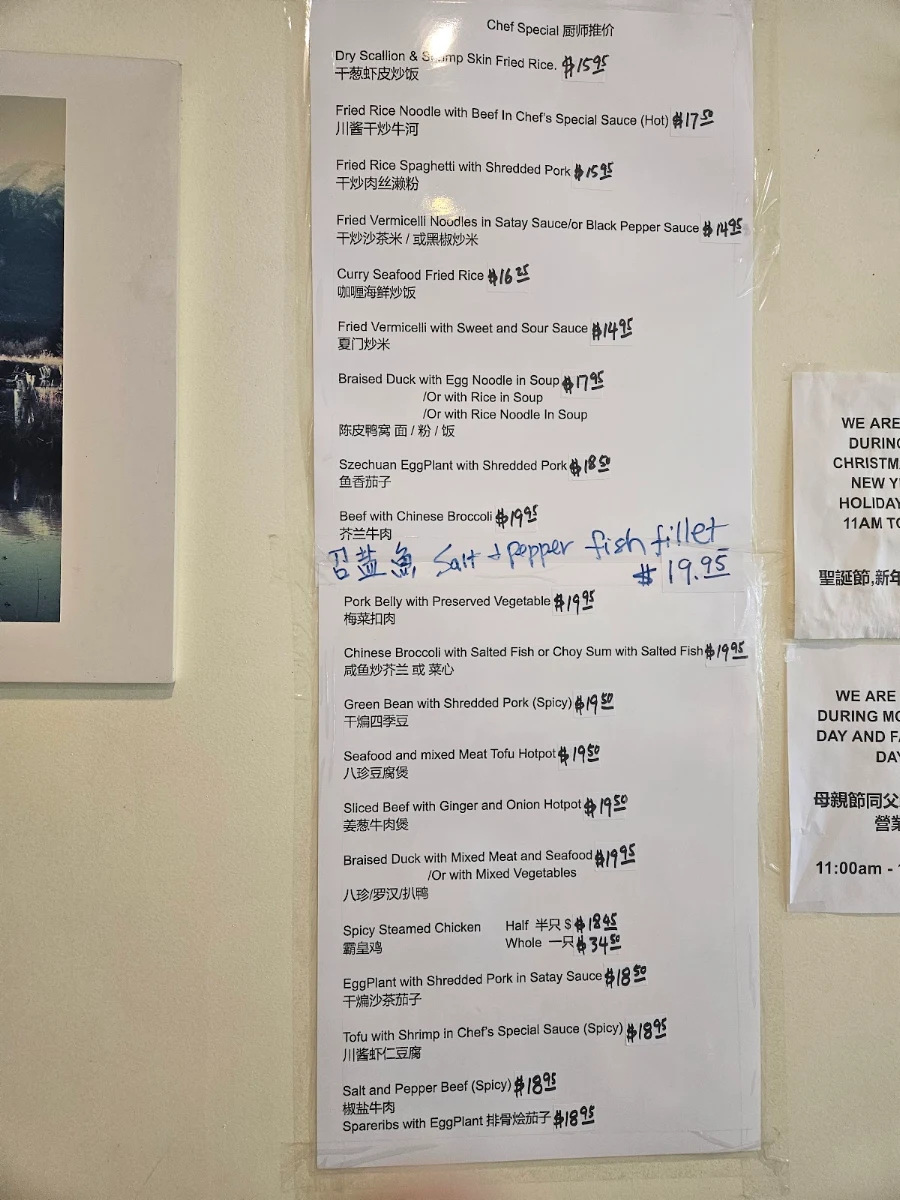 Chef Special 厨师推价
Dry Scallion & Shrimp Skin Fried Rice. $15.95
干葱虾皮炒饭
Fried Rice Noodle with Beef In Chef's Special Sauce (Hot) $17.50
川酱干炒牛河
Fried Rice Spaghetti with Shredded Pork $15.95
干炒肉丝濑粉
Fried Vermicelli Noodles in Satay Sauce/or Black Pepper Sauce $14.95
干炒沙茶米 / 或黑椒炒米
Curry Seafood Fried Rice $16.25
咖喱海鲜炒饭
Fried Vermicelli with Sweet and Sour Sauce $14.95
夏门炒米
Braised Duck with Egg Noodle in Soup $17.95
/Or with Rice in Soup
/Or with Rice Noodle In Soup
陈皮鸭窝 面 / 粉 / 饭
Szechuan EggPlant with Shredded Pork $18.50
鱼香茄子
Beef with Chinese Broccoli $19.95
芥兰牛肉
召盐魚 Salt & pepper fish fillet
$19.95
Pork Belly with Preserved Vegetable $19.95
梅菜扣肉
Chinese Broccoli with Salted Fish or Choy Sum with Salted Fish $19.95
咸鱼炒芥兰 或 菜心
Green Bean with Shredded Pork (Spicy) $19.50
干煸四季豆
Seafood and mixed Meat Tofu Hotpot $19.50
八珍豆腐煲
Sliced Beef with Ginger and Onion Hotpot $19.50
姜葱牛肉煲
Braised Duck with Mixed Meat and Seafood $19.95
/Or with Mixed Vegetables
八珍/罗汉/扒鸭
Spicy Steamed Chicken Half 半只 $ $18.95
霸皇鸡 Whole 一只 $34.50
EggPlant with Shredded Pork in Satay Sauce $18.50
干煸沙茶茄子
Tofu with Shrimp in Chef's Special Sauce (Spicy) $18.95
川酱虾仁豆腐
Salt and Pepper Beef (Spicy) $18.95
椒盐牛肉
Spareribs with EggPlant 排骨烩茄子 $18.95
WE ARE
DURING
CHRISTM
NEW Y
HOLIDAY
11AM TO
聖誕節,新年
WE ARE
DURING MO
DAY AND FA
DAY
母親節同父
營業
11:00am -